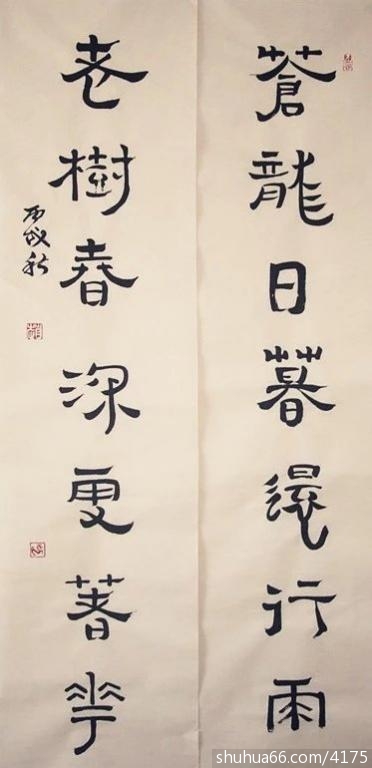 蒼龍日暮還行雨
老樹春深更著華
丙戌秋
shuhua66.com/4175